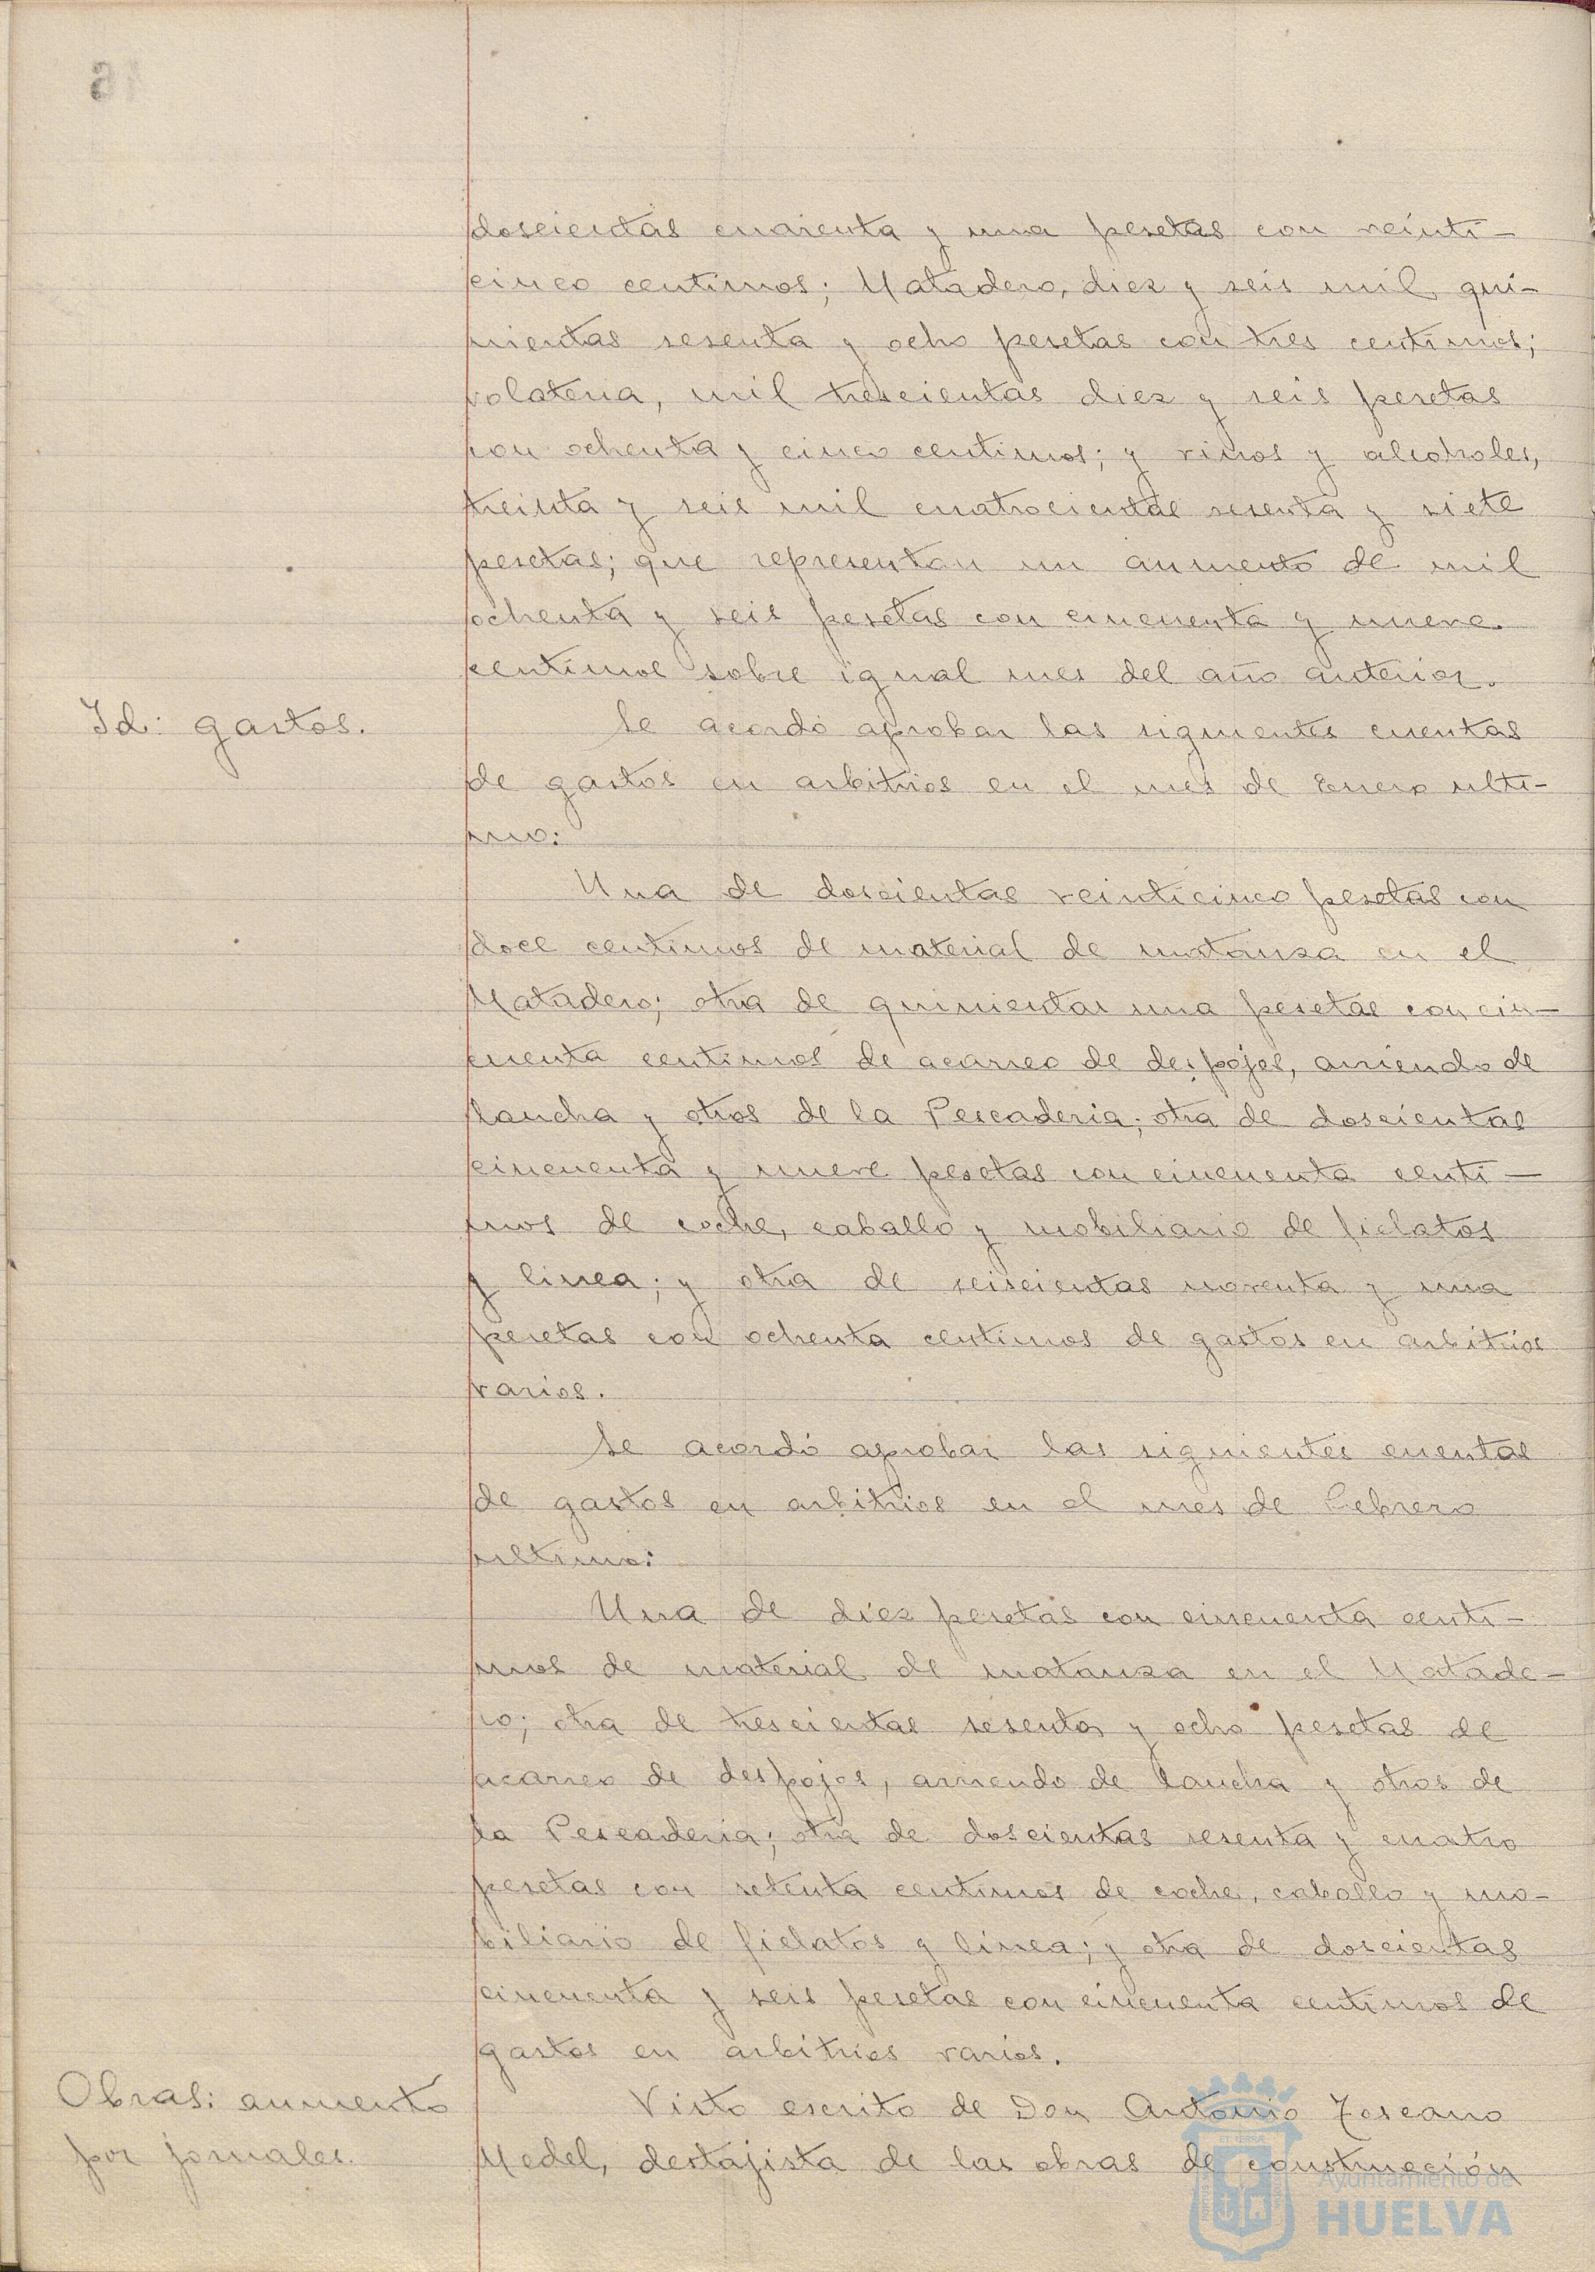 doscientas cuarenta y una pesetas con veinti-
cinco centimos; Matadero, diez y seis mil qui-
nientas sesenta y ocho pesetas con tres centimos;
volateria, mil trescientas diez y seis pesetas
con ochenta y cinco centimos; y vinos y alcoholes,
treinta y seis mil cuatrocientas sesenta y siete
pesetas; que representan un aumento de mil
ochenta y seis pesetas con cincuenta y nueve
centimos sobre igual mes del año anterior.
Id: gastos.
Se acordó aprobar las siguientes cuentas
de gastos en arbitrios en el mes de Enero ulti-
mo:
Una de doscientas veinticinco pesetas con
doce centimos de material de matanza en el
Matadero; otra de quinientas una pesetas con cin-
cuenta centimos de acarreo de despojos, arriendo de
lancha y otros de la Pescaderia; otra de doscientas
cincuenta y nueve pesetas con cincuenta centi-
mos de coche, caballo y mobiliario de fielatos
y linea; y otra de seiscientas noventa y una
pesetas con ochenta centimos de gastos en arbitrios
varios.
Se acordó aprobar las siguientes cuentas
de gastos en arbitrios en el mes de Febrero
ultimo:
Una de diez pesetas con cincuenta centi-
mos de material de matanza en el Matade-
ro; otra de trescientas sesenta y ocho pesetas de
acarreo de despojos, arriendo de lancha y otros de
la Pescaderia; otra de doscientas sesenta y cuatro
pesetas con setenta centimos de coche, caballo y mo-
biliario de fielatos y linea; y otra de doscientas
cincuenta y seis pesetas con cincuenta centimos de
gastos en arbitrios varios.
Obras: aumento
por jornales.
Visto escrito de Don Antonio Toscano
Medel, destajista de las obras de construcción
Ayuntamiento de
HUELVA